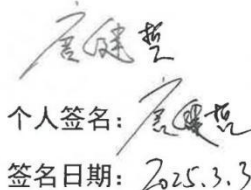 唐健哲
个人签名：唐健哲
签名日期：2025.3.3